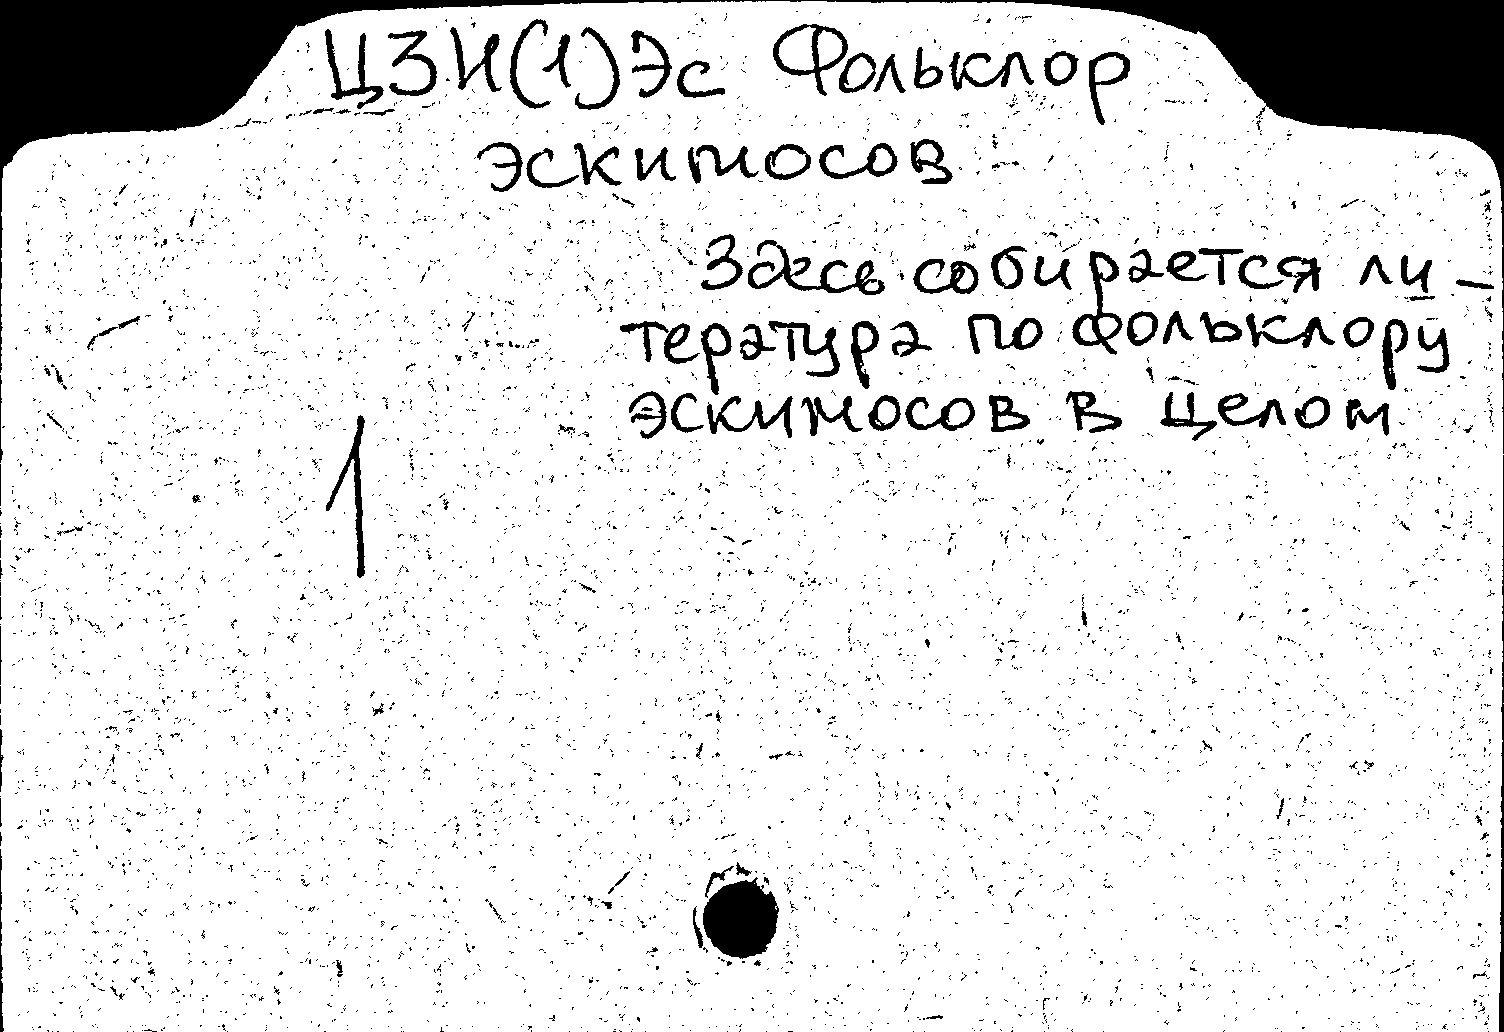 ЦЗИ(1)Эс Фольклор
эскимосов
Здесь собирается ли-
тература по фольклору
эскимосов в целом
1